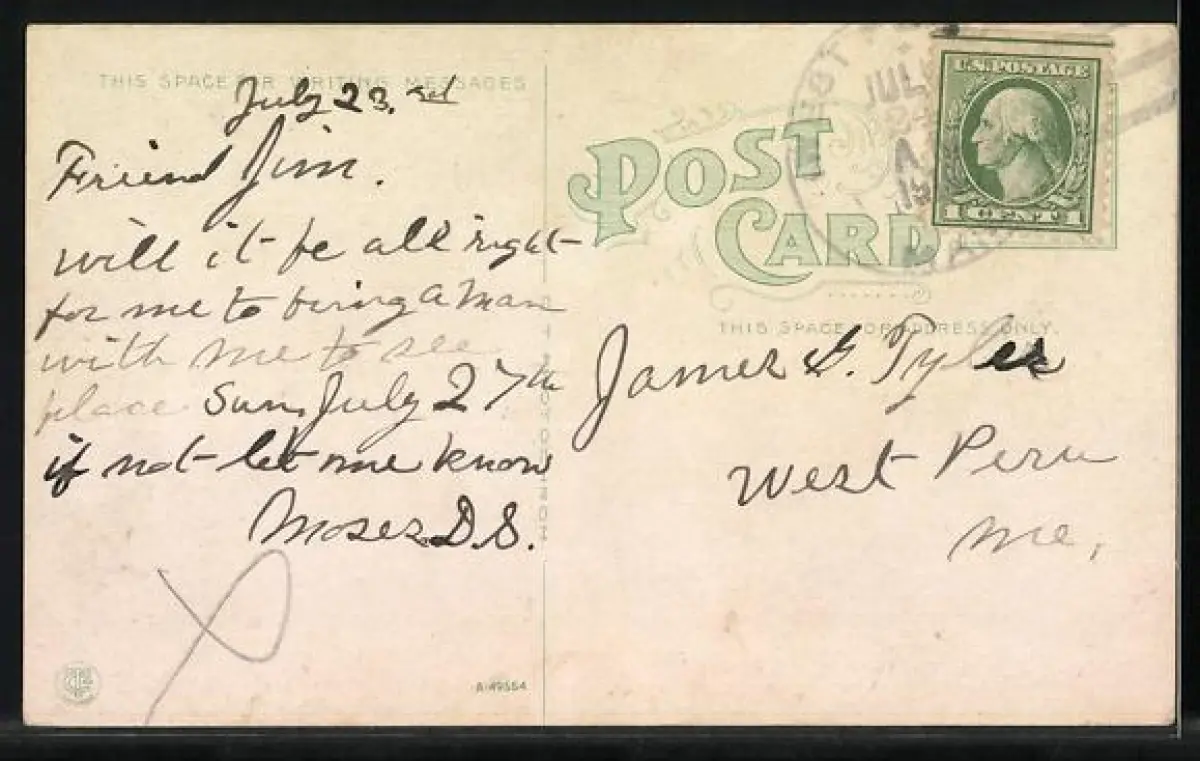 THIS SPACE FOR WRITING MESSAGES
July 23, rd
Friend Jim.
will it be all right
for me to bring a man
with me to see
place Sun, July 27th
if not let me know
Moses D.S.
A-49554
POST
CARD
JUL
U.S. POSTAGE
1 CENT 1
THIS SPACE FOR ADDRESS ONLY.
James F. Tyler
West Peru
Me,